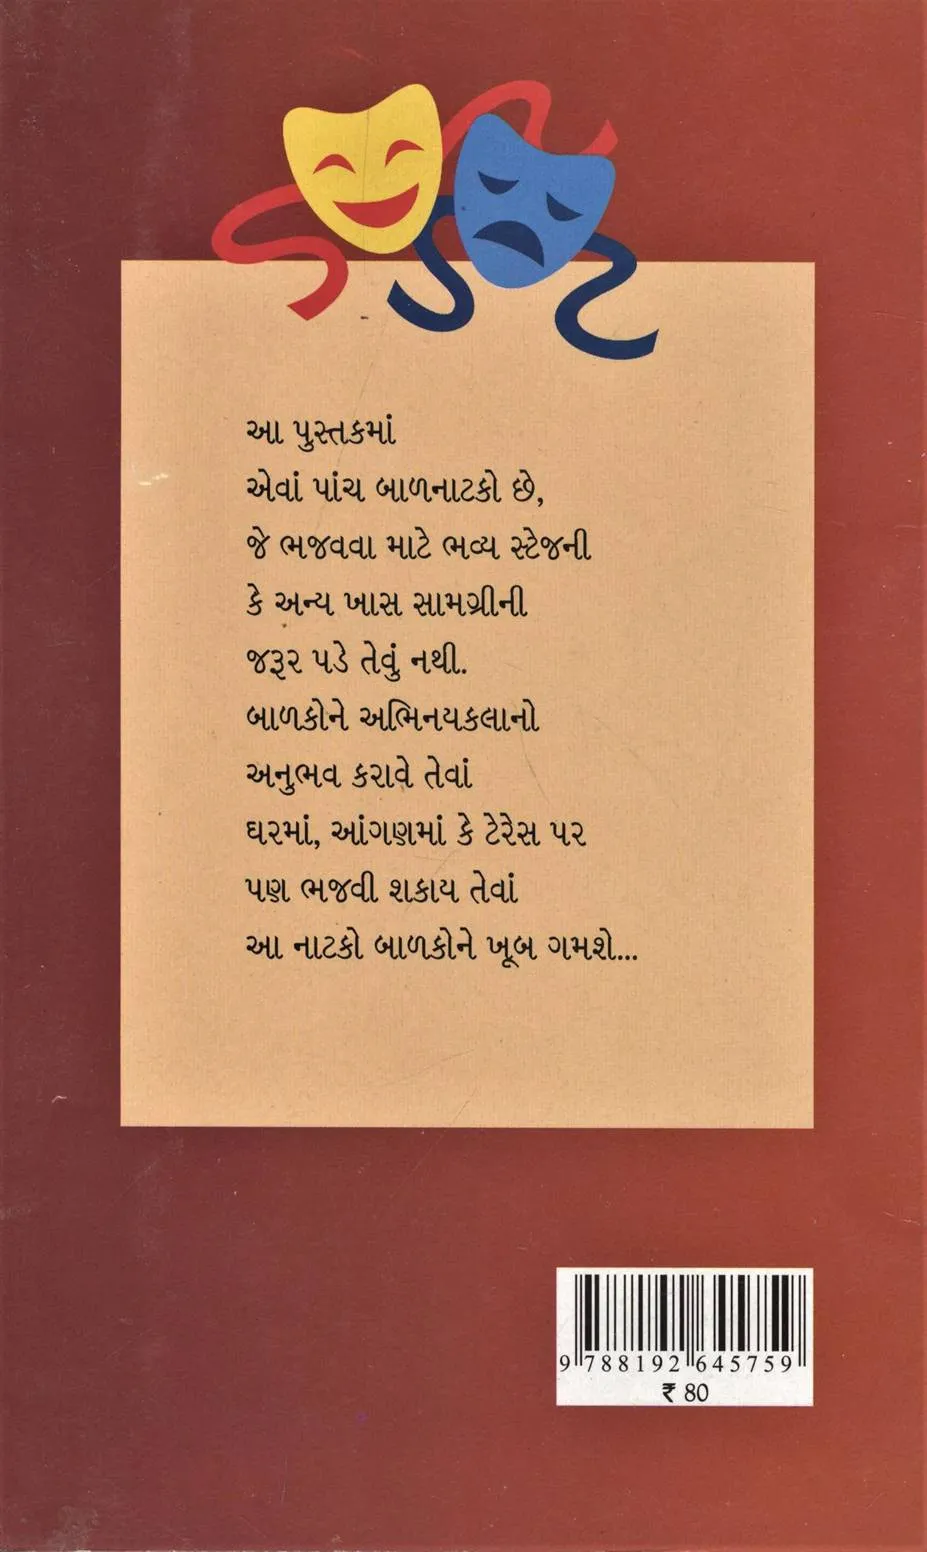 આ પુસ્તકમાં
એવાં પાંચ બાળનાટકો છે,
જે ભજવવા માટે ભવ્ય સ્ટેજની
કે અન્ય ખાસ સામગ્રીની
જરૂર પડે તેવું નથી.
બાળકોને અભિનયકલાનો
અનુભવ કરાવે તેવાં
ઘરમાં, આંગણમાં કે ટેરેસ પર
પણ ભજવી શકાય તેવાં
આ નાટકો બાળકોને ખૂબ ગમશે...
9 788192 645759
₹ 80